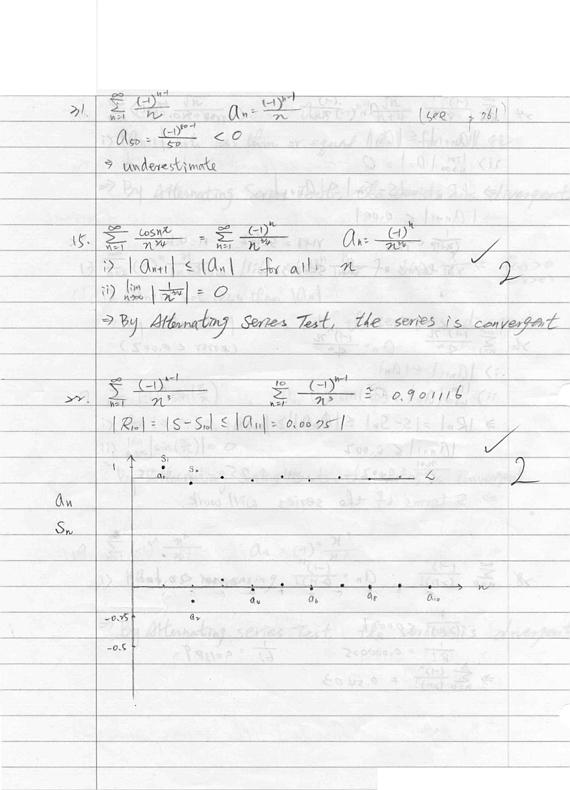 31. \sum_{n=1}^{\infty} \frac{(-1)^{n-1}}{n} a_n = \frac{(-1)^{n-1}}{n} (see , 761)
a_{50} = \frac{(-1)^{50-1}}{50} < 0
⇒ underestimate
15. \sum_{n=1}^{\infty} \frac{cos nπ}{n^{3/4}} = \sum_{n=1}^{\infty} \frac{(-1)^n}{n^{3/4}} a_n = \frac{(-1)^n}{n^{3/4}} ✓ 2
i) |a_{n+1}| ≤ |a_n| for all n
ii) \lim_{n→∞} |\frac{1}{n^{3/4}}| = 0
⇒ By Alternating Series Test, the series is convergent
22. \sum_{n=1}^{\infty} \frac{(-1)^{n-1}}{n^3} \sum_{n=1}^{10} \frac{(-1)^{n-1}}{n^3} ≅ 0.901116
|R_{10}| = |S-S_{10}| ≤ |a_{11}| = 0.00751 ✓ 2
1 S_1
a_1 S_2 L
a_n
S_n
a_4 a_6 a_8 a_{10} n
a_2
-0.25
-0.5